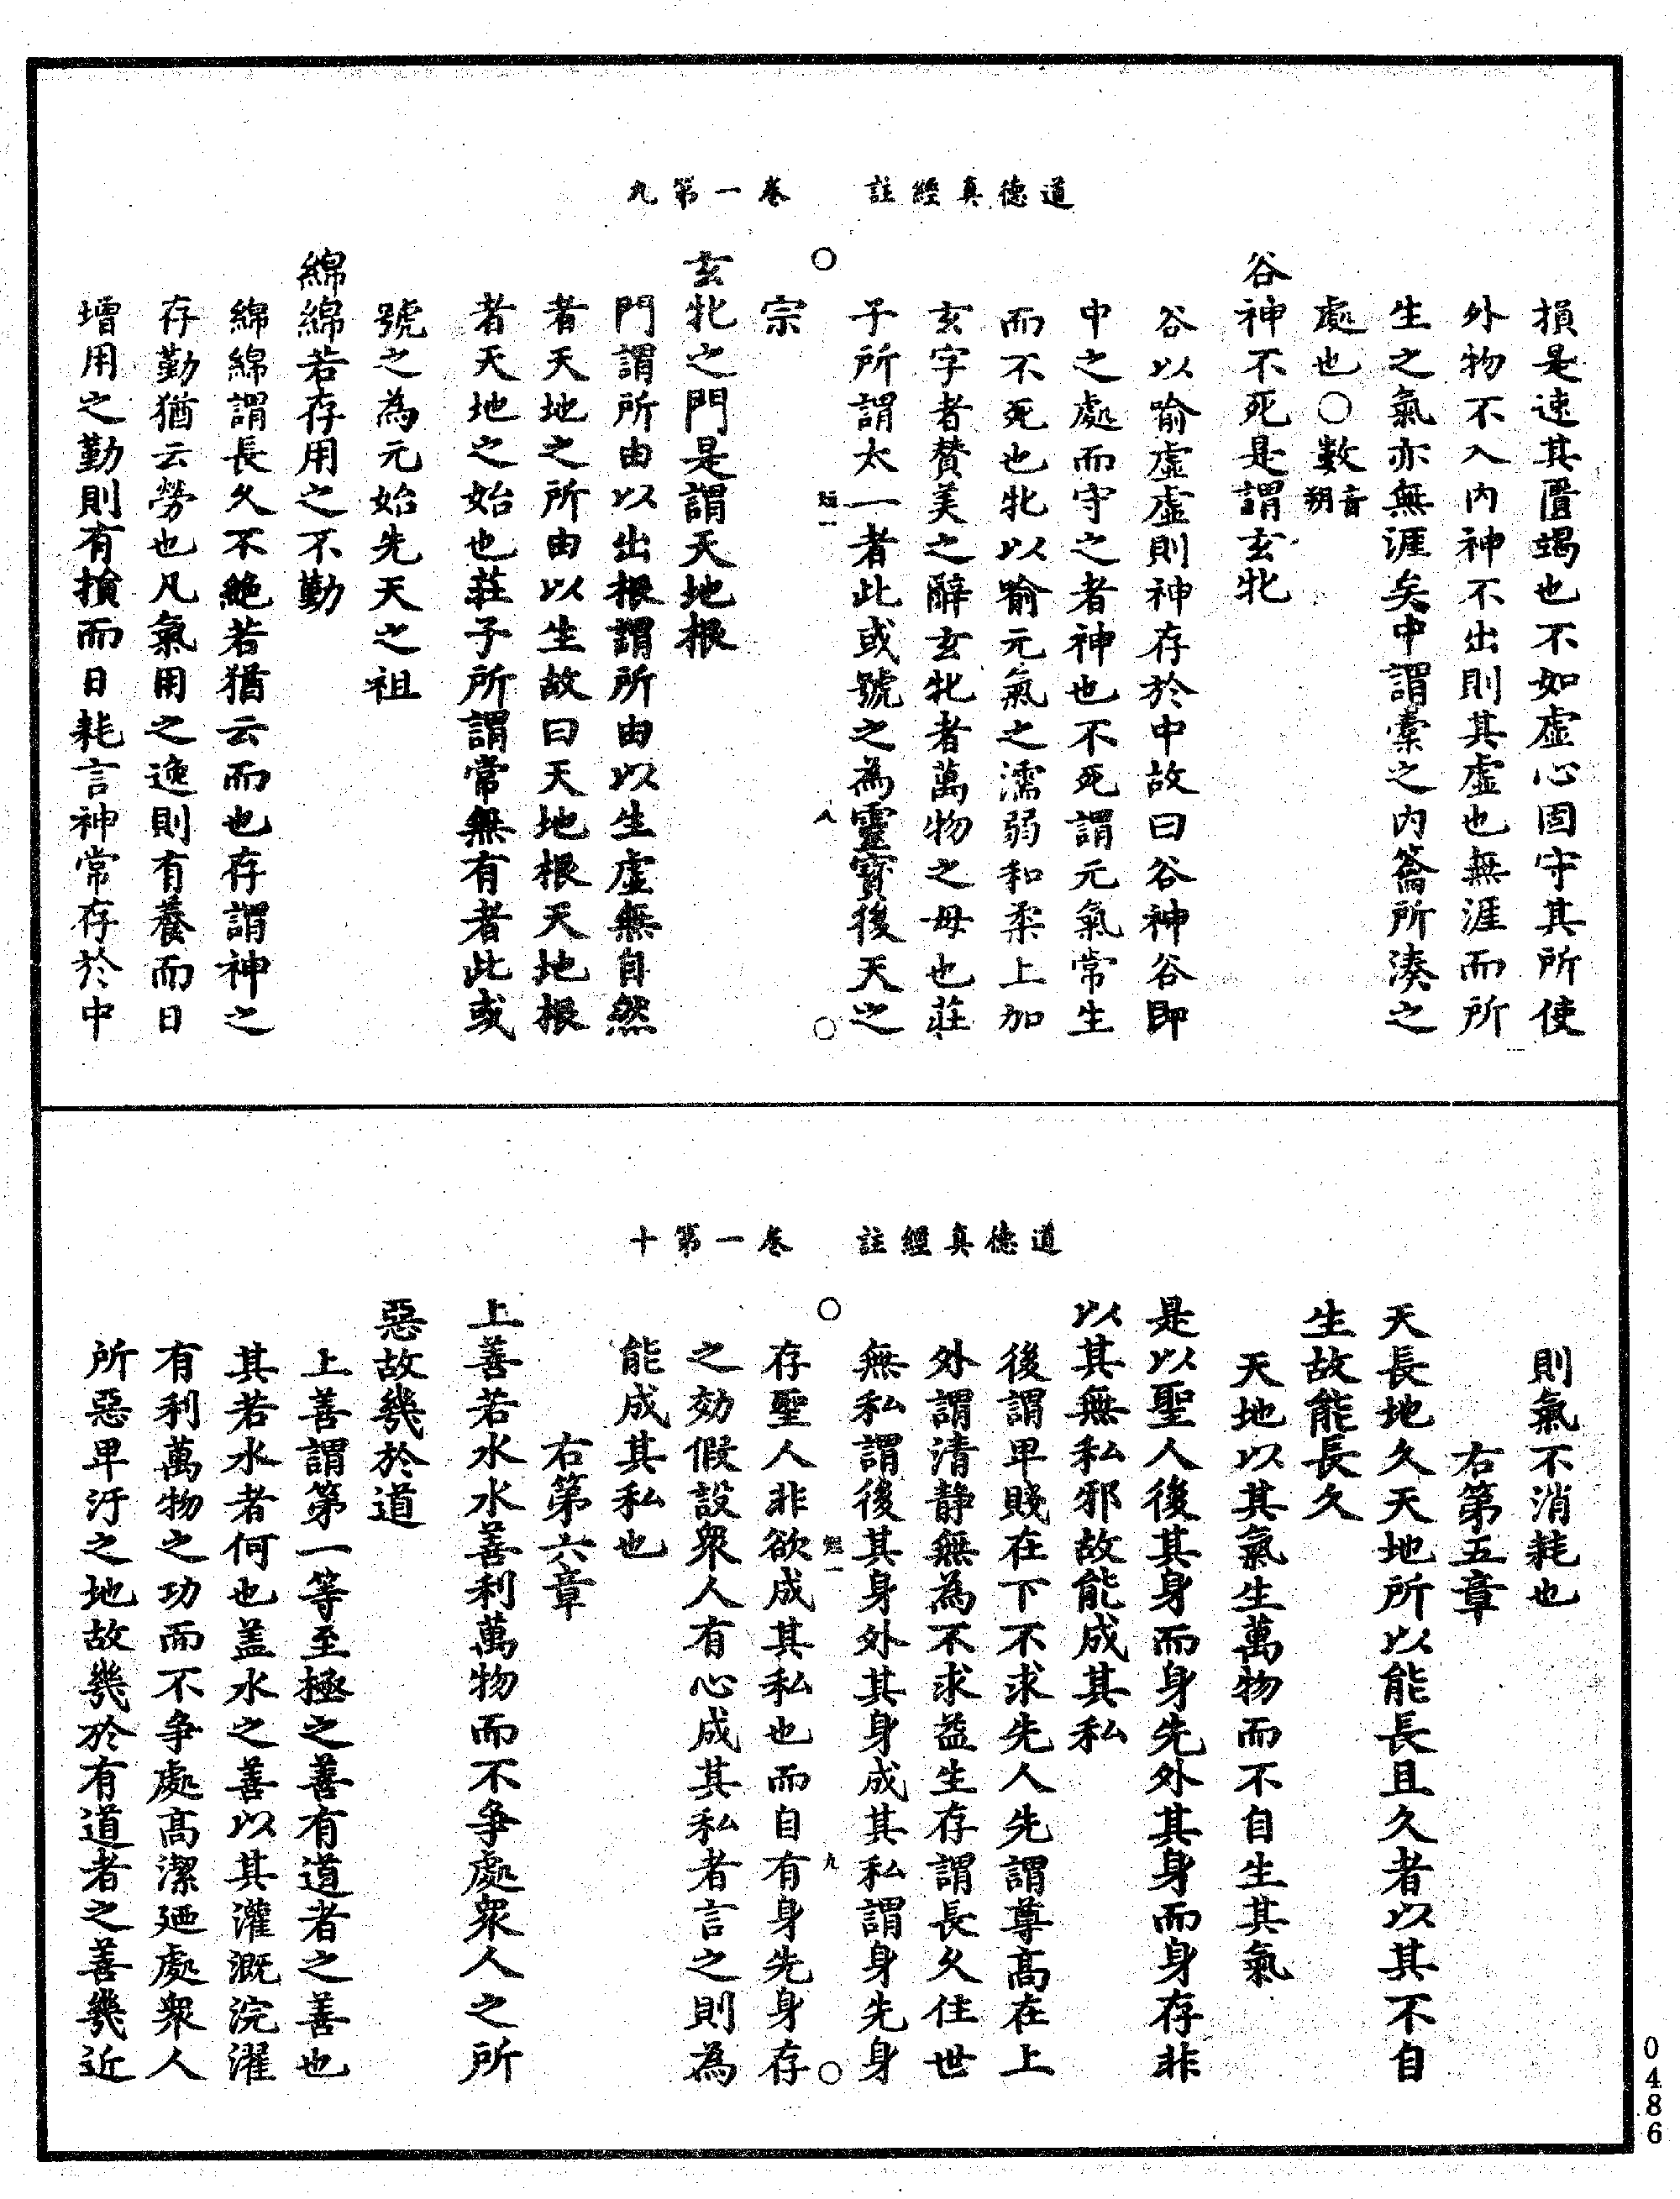 道德真經註　卷一第九
損是速其匱竭也不如虛心固守其所使
外物不入內神不出則其虛也無涯而所
生之氣亦無涯矣中謂橐之內籥所湊之
處也○數音朔
谷神不死是謂玄牝
谷以喻虛虛則神存於中故曰谷神谷即
中之處而守之者神也不死謂元氣常生
而不死也牝以喻元氣之濡弱和柔上加
玄字者贊美之辭玄牝者萬物之母也莊
子所謂太一者此或號之為靈寶後天之
○　一　八　○
宗
玄牝之門是謂天地根
門謂所由以出根謂所由以生虛無自然
者天地之所由以生故曰天地根天地根
者天地之始也莊子所謂常無有者此或
號之為元始先天之祖
綿綿若存用之不勤
綿綿謂長久不絶若猶云而也存謂神之
存勤猶云勞也凡氣用之逸則有養而日
增用之勤則有損而日耗言神常存於中
道德真經註　卷一第十
則氣不消耗也
右第五章
天長地久天地所以能長且久者以其不自
生故能長久
天地以其氣生萬物而不自生其氣
是以聖人後其身而身先外其身而身存非
以其無私邪故能成其私
後謂卑賤在下不求先人先謂尊高在上
外謂清静無為不求益生存謂長久住世
無私謂後其身外其身成其私謂身先身
○　一　九　○
存聖人非欲成其私也而自有身先身存
之効假設衆人有心成其私者言之則為
能成其私也
右第六章
上善若水水善利萬物而不争處衆人之所
惡故幾於道
上善謂第一等至極之善有道者之善也
其若水者何也盖水之善以其灌溉浣濯
有利萬物之功而不争處高潔廼處衆人
所惡卑汙之地故幾於有道者之善幾近
0486